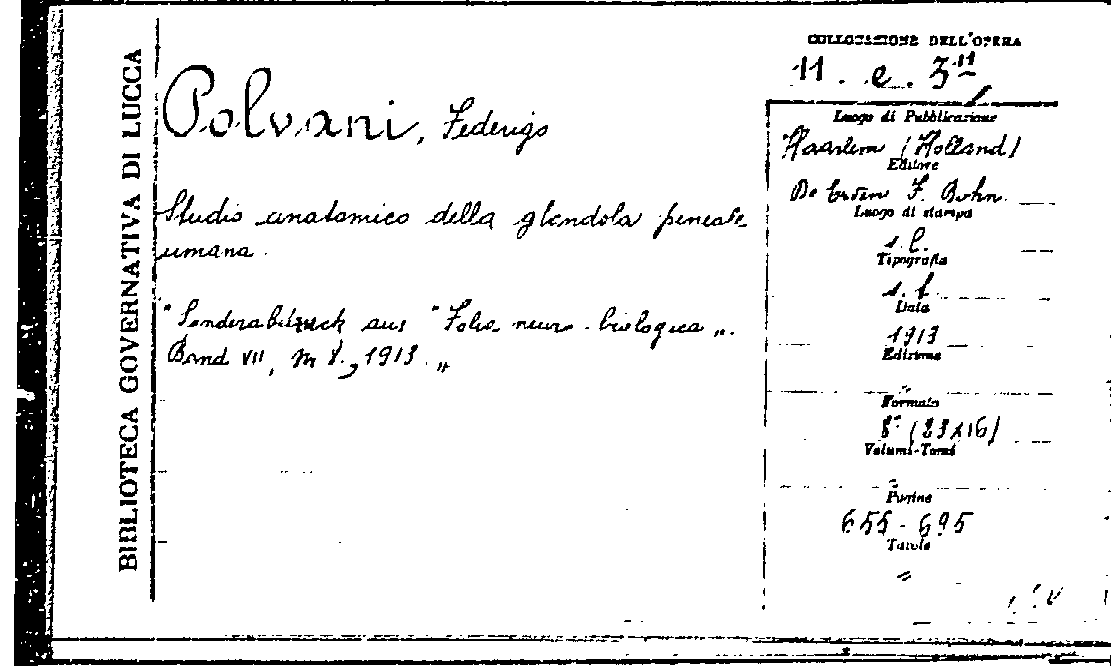 BIBLIOTECA GOVERNATIVA DI LUCCA
COLLOCAZIONE DELL'OPERA
11. e. 3¹¹
Polvani, Federigo
Studio anatomico della glandola pineale
umana.
"Sonderabdruck aus "Folia neuro-biologica".
Band VII, 1913."
Luogo di Pubblicazione
Haarlem (Holland)
Editore
De Erven F. Bohn.
Luogo di stampa
s. l.
Tipografia
s. t.
Data
1913
Edizione
"
Formato
8° (23x16)
Volumi-Tomi
"
Pagine
655-695
Tavole
"